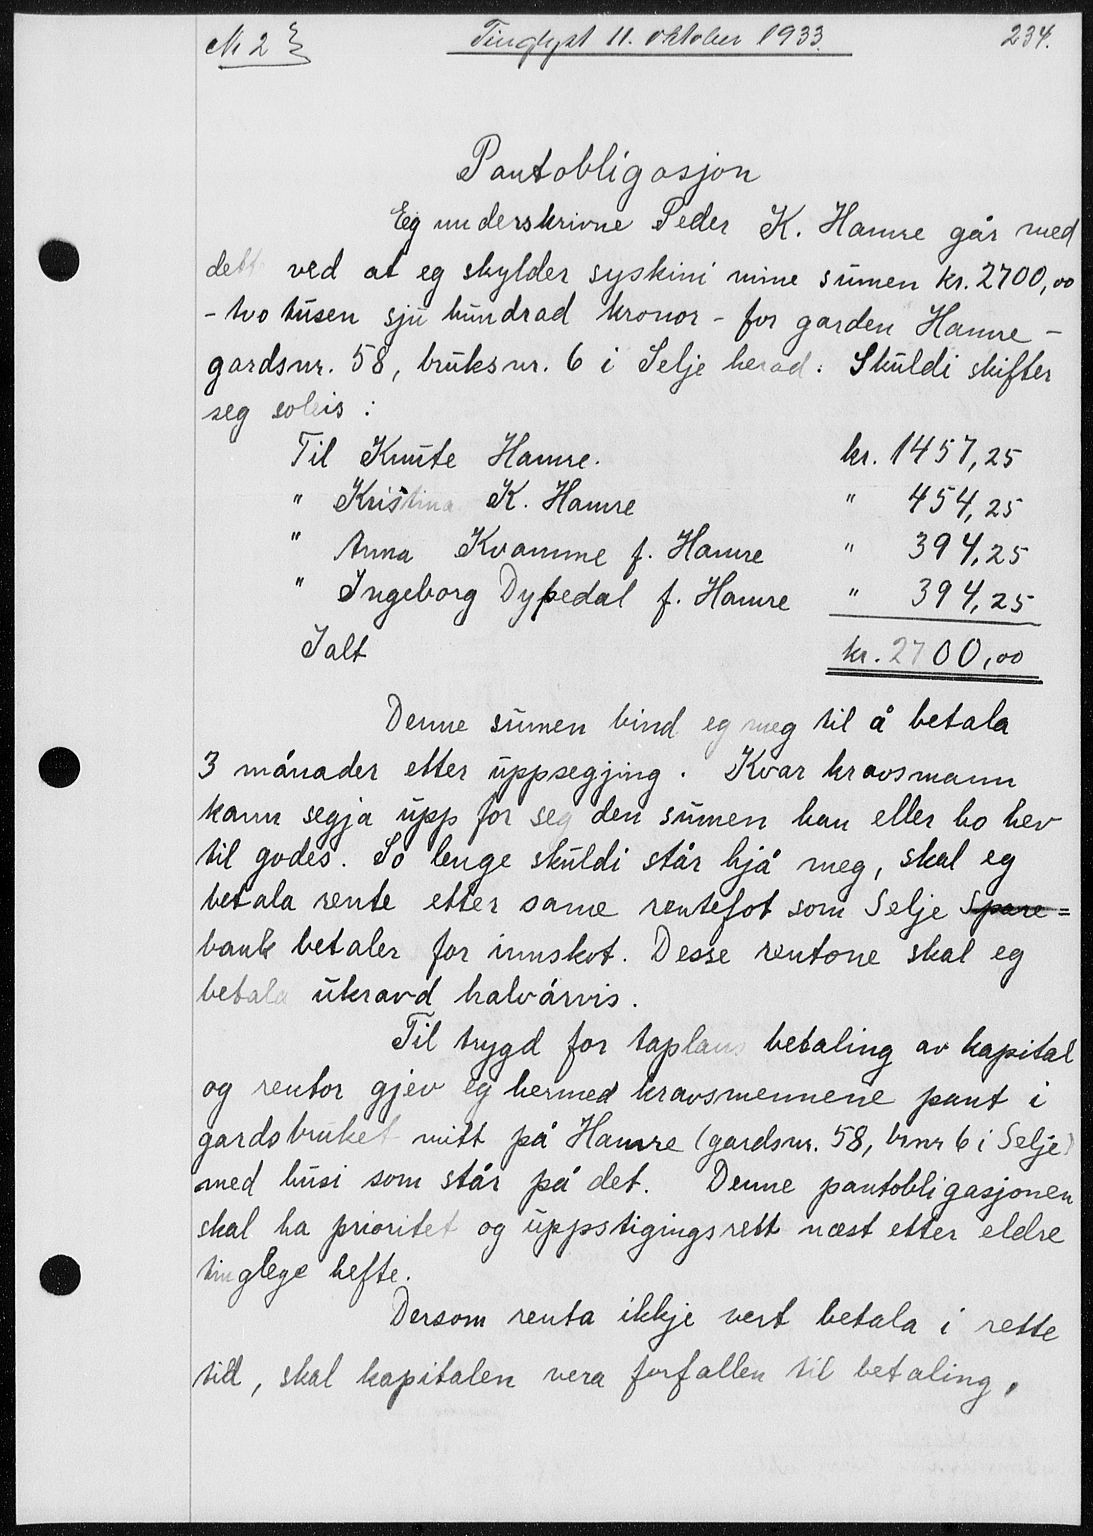 № 2 Tinglyst 11. oktober 1933. 234.
Pantobligasjon
Eg underskrivne Peder K. Hamre går med
dett ved at eg skylder syskini mine sumen kr. 2700,00
- tvo tusen sju hundrad kronor - for garden Hamre -
gardsnr. 58, bruksnr. 6 i Selje herad: Skuldi skifter
seg soleis :
Til Knute Hamre. kr. 1457,25
" Kristina K. Hamre " 454,25
" Anna Kvamme f. Hamre " 394,25
" Ingeborg Dypedal f. Hamre " 394,25
Ialt kr. 2700,00
Denne sumen bind eg meg til å betala
3 månader etter uppsegjing. Kvar kravsmann
kann segja upp for seg den sumen han eller ho hev
til godes. So lenge skuldi står hjå meg, skal eg
betala rente etter same rentefot som Selje Spare=
bank betaler for innskot. Desse rentone skal eg
betala ukravd halvårvis.
Til trygd for taplaus betaling av kapital
og rentor gjev eg hermed kravsmennene pant i
gardsbruket mitt på Hamre (gardsnr. 58, brnr 6 i Selje)
med husi som står på det. Denne pantobligasjonen
skal ha prioritet og uppstigingsrett næst etter eldre
tinglege hefte.
Dersom renta ikkje vert betala i rette
tid, skal kapitalen vera forfallen til betaling,